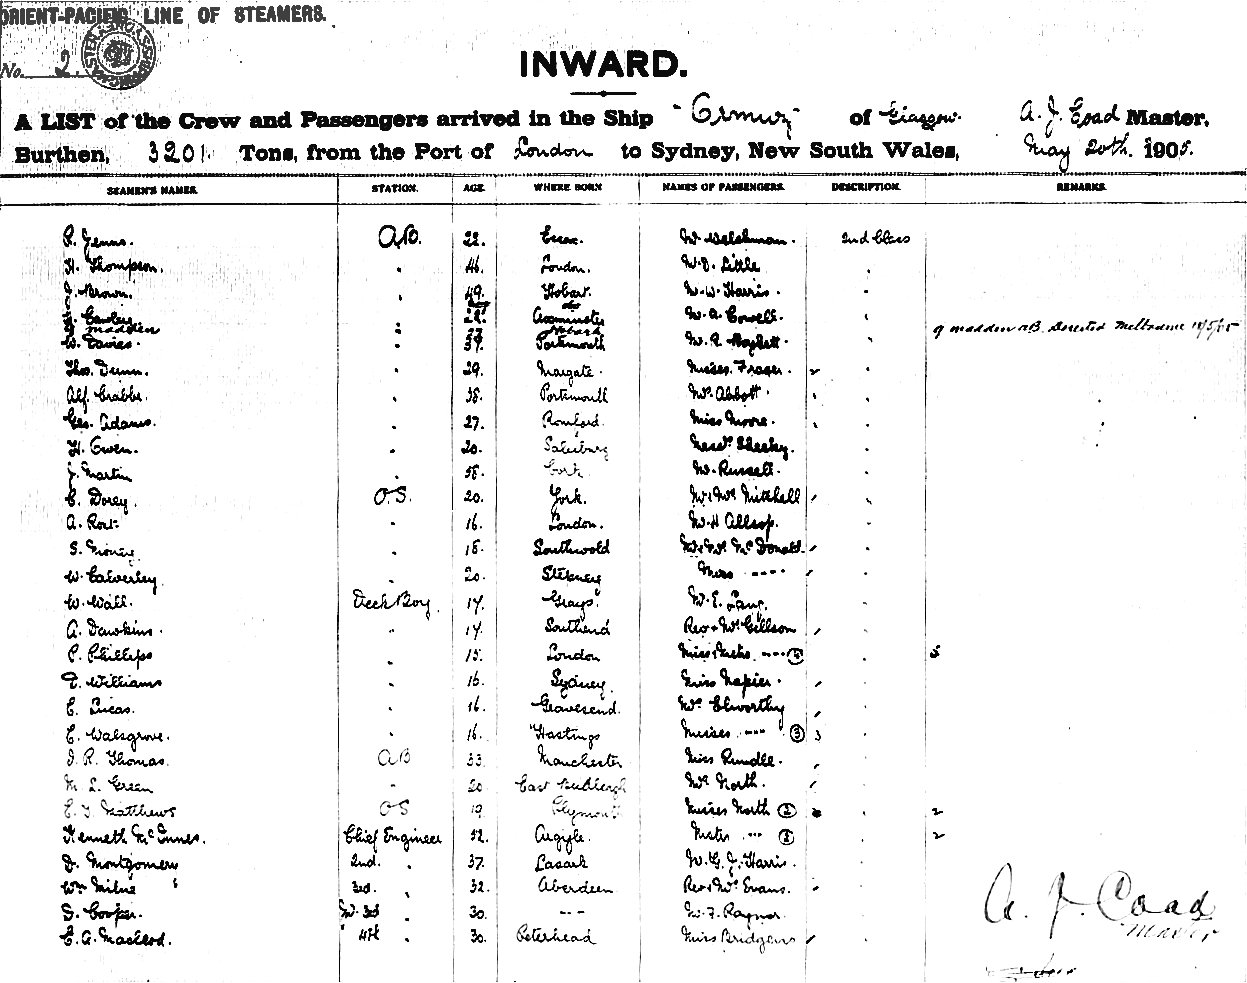 ORIENT-PACIFIC LINE OF STEAMERS.
No. 2
INWARD.
A LIST of the Crew and Passengers arrived in the Ship "Ormuz" of Glasgow. A. J. Coad Master,
Burthen, 3201 Tons, from the Port of London to Sydney, New South Wales, May 20th. 1905.
SEAMEN'S NAMES. STATION. AGE. WHERE BORN NAMES OF PASSENGERS. DESCRIPTION. REMARKS.
A.B. 22. Essex. Mr Welshman. 2nd Class
H. Thompson. 46. London. Little
Brown. 49. Hobart. Mr W. Harris.
28. Axminster Mr A. Cowell.
Madden Hobart G Madden AB. Deserted Melbourne
W. Davies. 39. Portsmouth
Thos. Dunn. 29. Margate. Misses Fraser.
Alf. Crabbe. 38. Portsmouth Mrs Abbott
Geo. Adams. 27. Romford. Miss Moore.
H. Owen. 20. Salisbury
J. Martin 58. Cork. Mr Russell.
C. Dorey. O.S. 20. York. Mr & Mrs Mitchell
A. 16. London. Mr H Allsop.
S. Money. 18. Southwold Mr & Mrs McDonald.
W. Calverley 20. Stepney Miss "
W. Wall. Deck Boy. 17. Grays. Mr E. Lang.
A. Dawkins. 17. Southend Rev & Mrs Gillson
P. Phillips 15. London 5
Williams 16. Sydney. Miss Napier.
C. Lucas. 16. Gravesend. Mrs Elworthy
C. Walsgrove. 16. Hastings Misses " 3 3
J. R. Thomas. AB 33. Manchester Miss Rundle.
M. L. Green 20. East Mrs North.
C. J. Matthews OS 19. Plymouth Misses North 2 2
Kenneth McInnes. Chief Engineer 52. Argyle. 2
D. Montgomery 2nd. 37. Lanark Mr G. J. Harris.
Wm Milne 3rd. 32. Aberdeen Rev & Mrs Evans.
Cooper. 3rd 30. Mr F. Raynor.
C. A. Macleod. 4th 30. Peterhead Miss Bridgens
A. J. Coad
Master